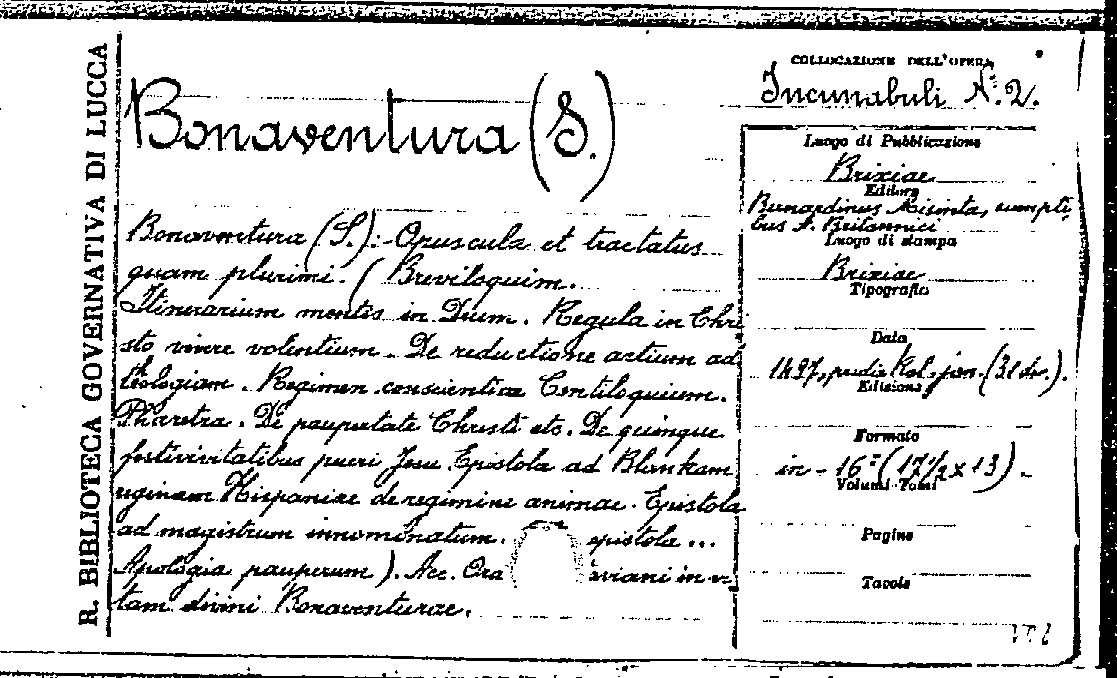 R. BIBLIOTECA GOVERNATIVA DI LUCCA
Bonaventura (S.)
Bonaventura (S.):- Opuscula et tractatus
quam plurimi. (Breviloquim.
Itinerarium mentis in Deum. Regula in Chri
sto vivere volentium. De reductione artium ad
theologiam. Regimen conscientiae Centiloquium.
Pharetra. De paupertate Christi etc. De quinque
festivivitatibus pueri Jesu. Epistola ad Blankam
reginam Hispaniae de regimine animae. Epistola
ad magistrum innominatum. epistola ...
Apologia pauperum). Acc. Ora aviani in vi
tam divini Bonaventurae.
COLLOCAZIONE DELL'OPERA
Incunabuli N.° 2.
Luogo di Pubblicazione
Brixiae
Editore
Bernardinus Misinta, sumpti
bus A. Britannici
Luogo di stampa
Brixiae
Tipografio
Data
1497, pridie Kal. jan. (31 dec.).
Edizione
Formato
in - 16° (17 1/2 x 13).
Volumi-Tomi
Pagine
Tavole